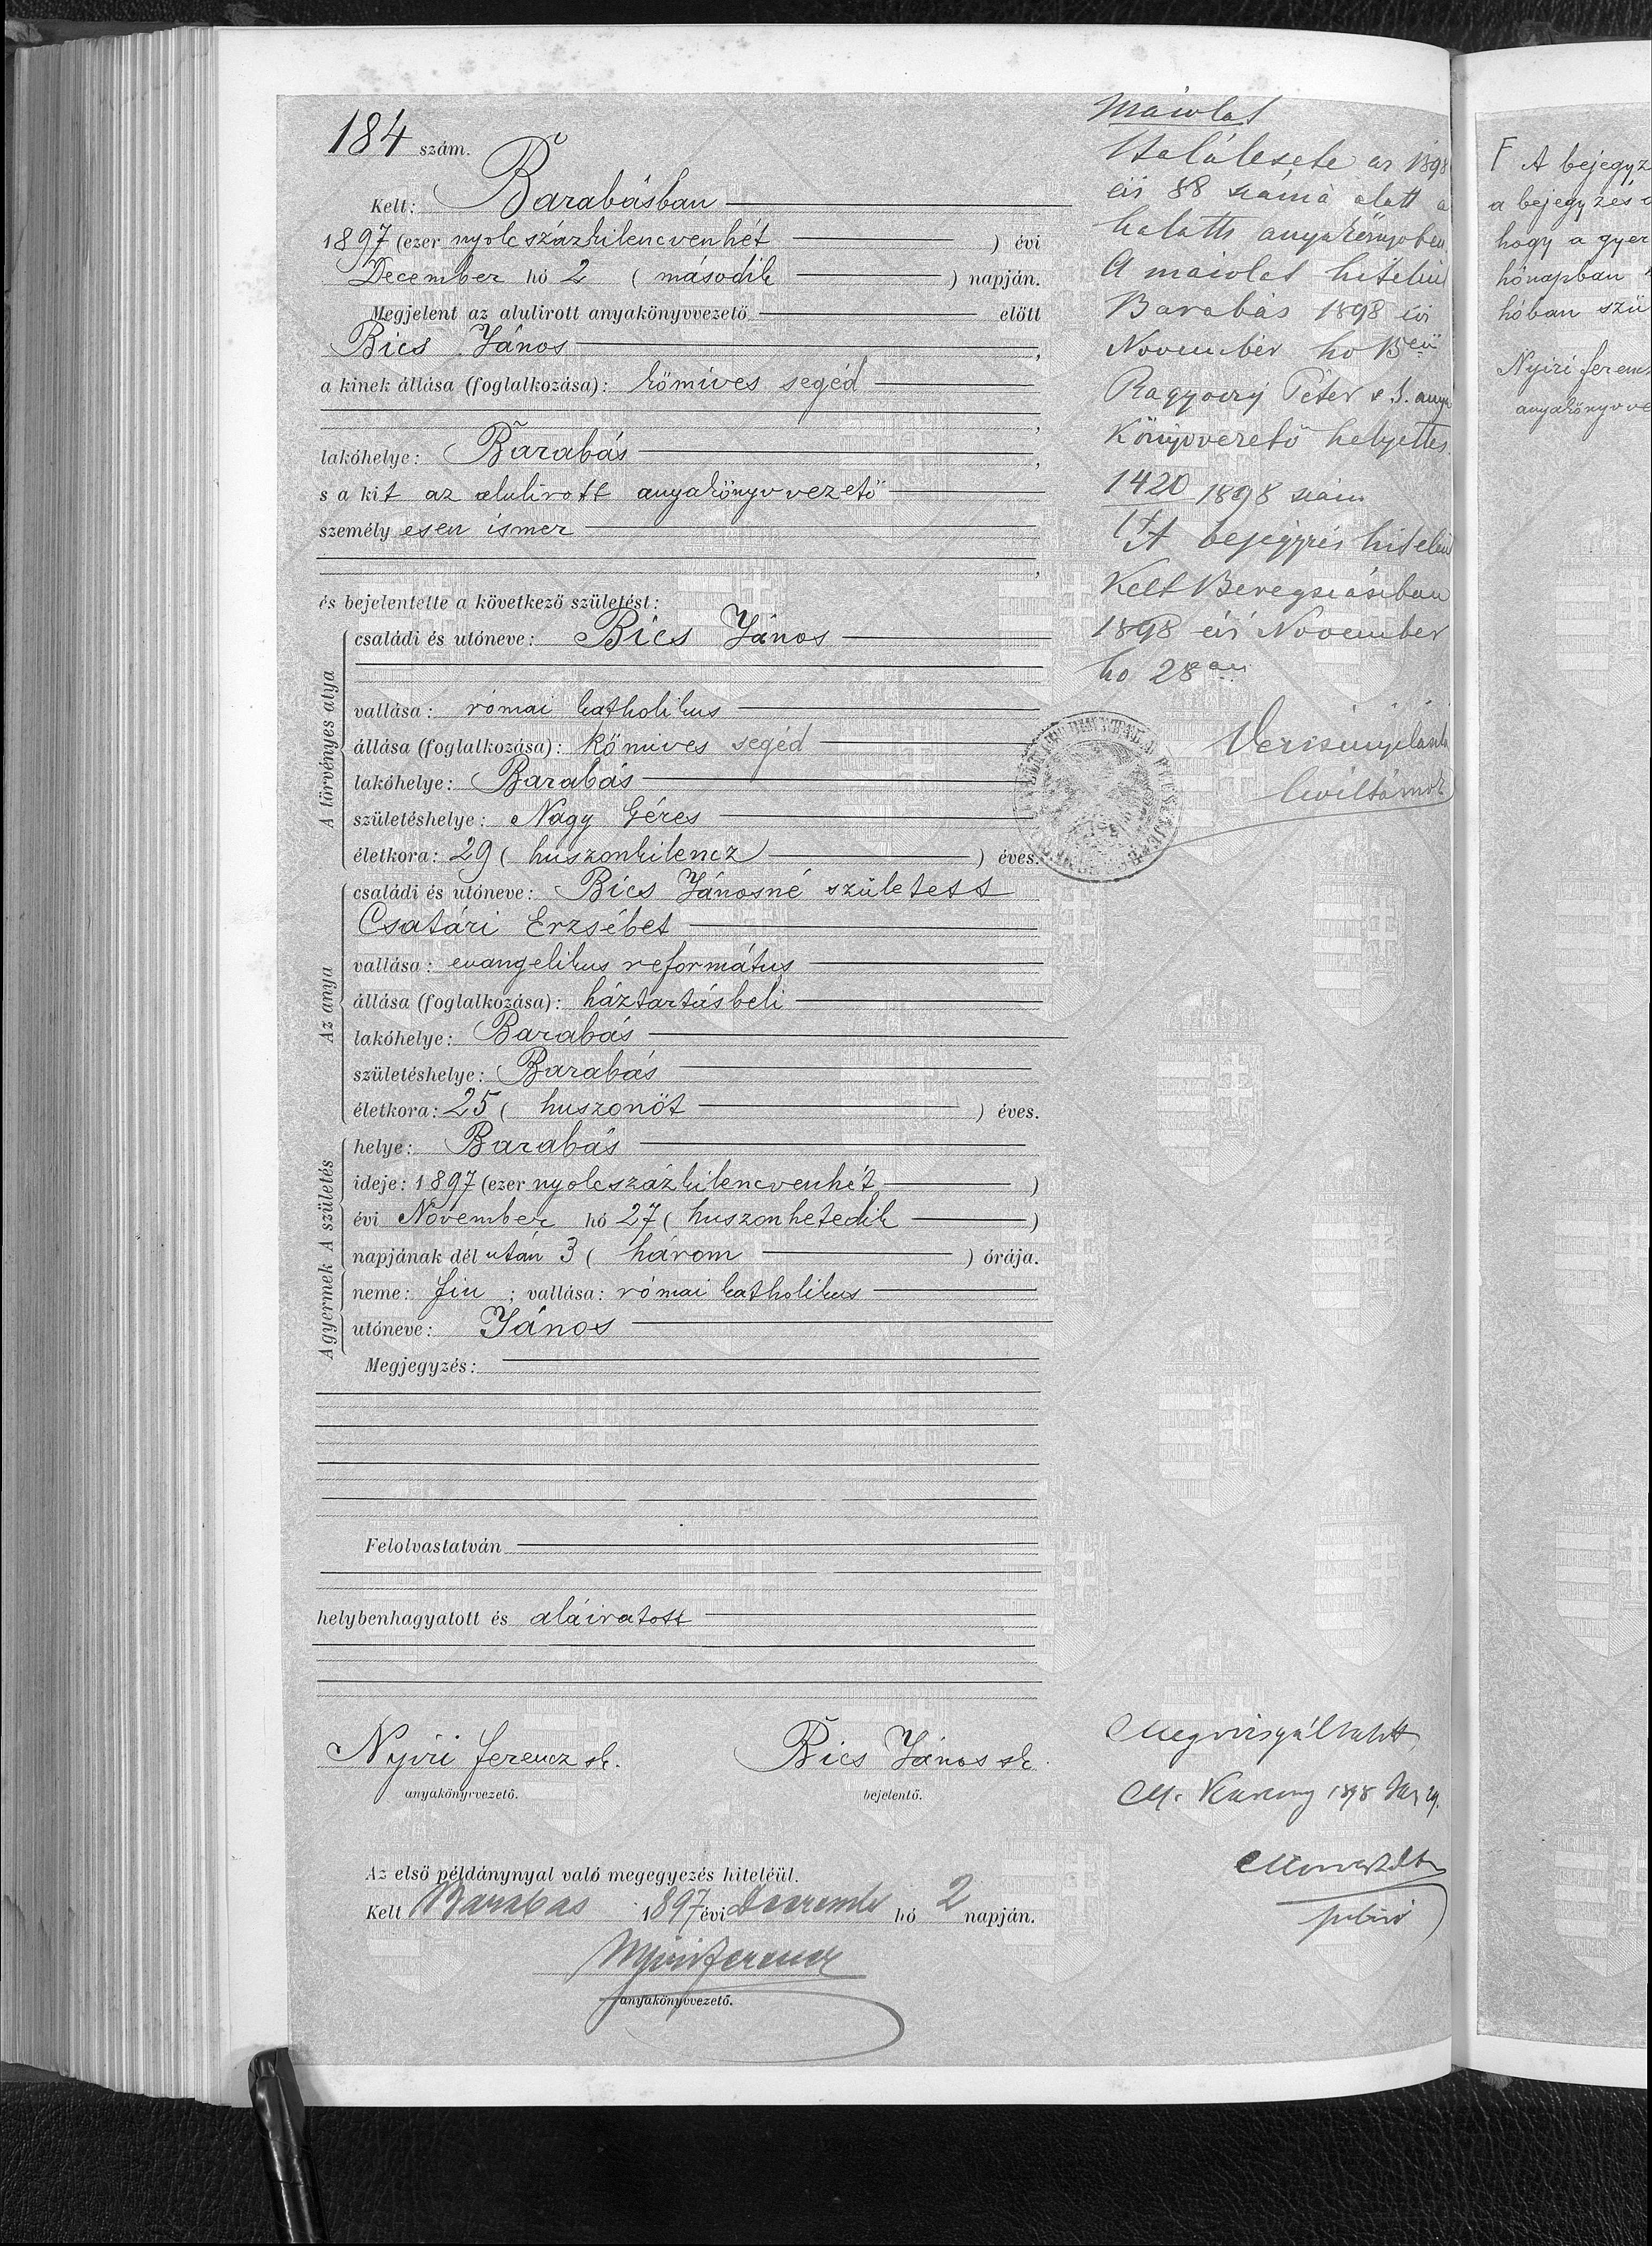 184 szám.
Kelt: Barabásban
1897 (ezer nyolcszázkilencvenhét) évi
December hó 2 (második) napján.
Megjelent az alulirott anyakönyvvezető előtt
Bics János,
a kinek állása (foglalkozása): kőmíves segéd
,
lakóhelye: Barabás,
s a kit az alulirott anyakönyvvezető
személyesen ismer
,
és bejelentette a következő születést:
A törvényes atya
családi és utóneve: Bics János
vallása: római katholikus
állása (foglalkozása): kőmives segéd
lakóhelye: Barabás
születéshelye: Nagy Géres
életkora: 29 (huszonkilencz) éves.
Az anya
családi és utóneve: Bics Jánosné született
Csatári Erzsébet
vallása: evangelikus református
állása (foglalkozása): háztartásbeli
lakóhelye: Barabás
születéshelye: Barabás
életkora: 25 (huszonöt) éves.
A születés
helye: Barabás
ideje: 1897 (ezer nyolcszázkilencvenhét)
évi November hó 27 (huszonhetedik)
napjának dél után 3 (három) órája.
A gyermek
neme: fiu; vallása: római katholikus
utóneve: János
Megjegyzés:
Felolvastatván
helybenhagyatott és aláiratott
Nyiri Ferencz sk.
anyakönyvvezető.
Bics János sk.
bejelentő.
Az első példánynyal való megegyezés hiteléül.
Kelt Barabás 1897 évi December hó 2 napján.
Nyiri Ferencz
anyakönyvvezető.
Másolat
Halálesete az 1898
évi 88 száma alatt a
halotti anyakönyvben
A másolat hiteléül
Barabás 1898 évi
November hó 15én
Péter
könyvvezető helyettes
1420 1898 szám
A bejegyzés hiteléül
Kelt Beregszászban
1898 évi November
hó 28án
Megvizsgáltatott
1898
F A bejegyz
a bejegyzés
hogy a gyer
hónapban
hóban szü
Nyiri Feren
anyakönyvve